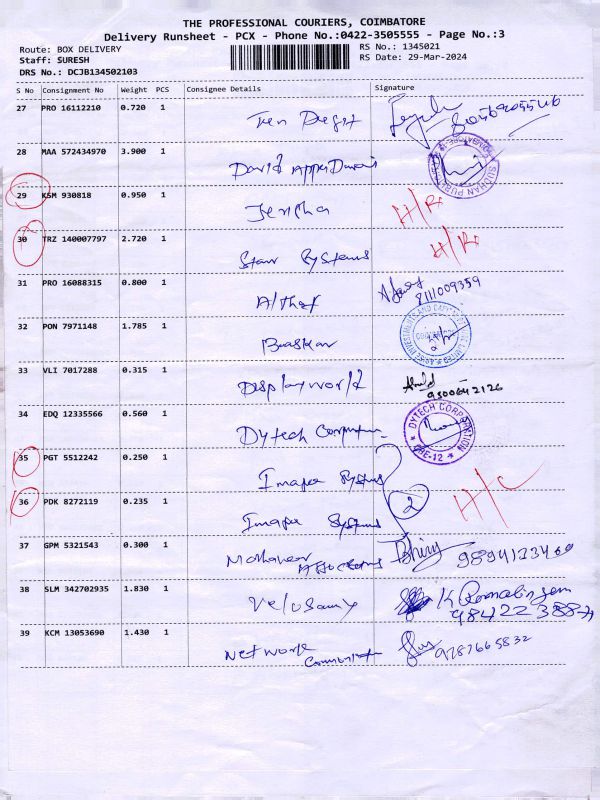 THE PROFESSIONAL COURIERS, COIMBATORE
Delivery Runsheet - PCX - Phone No.:0422-3505555 - Page No.:3
Route: BOX DELIVERY RS No.: 1345021
Staff: SURESH RS Date: 29-Mar-2024
DRS No.: DCJB134502103
S No Consignment No Weight PCS Consignee Details Signature
27 PRO 16112210 0.720 1
28 MAA 572434970 3.900 1 David
29 KSM 930818 0.950 1 H/R
30 TRZ 140007797 2.720 1 Star Systems H/R
31 PRO 16088315 0.800 1 Althaf 8111009359
32 PON 7971148 1.785 1 Baaskar
33 VLI 7017288 0.315 1 Displayworld 9300642126
34 EDQ 12335566 0.560 1 Dytech Corporation DYTECH CORPORATION CBE-12
35 PGT 5512242 0.250 1 Systems
36 PDK 8272119 0.235 1 Systems 2 H/C
37 GPM 5321543 0.300 1
38 SLM 342702935 1.830 1 Velusamy K
39 KCM 13053690 1.430 1 Network 9787665832